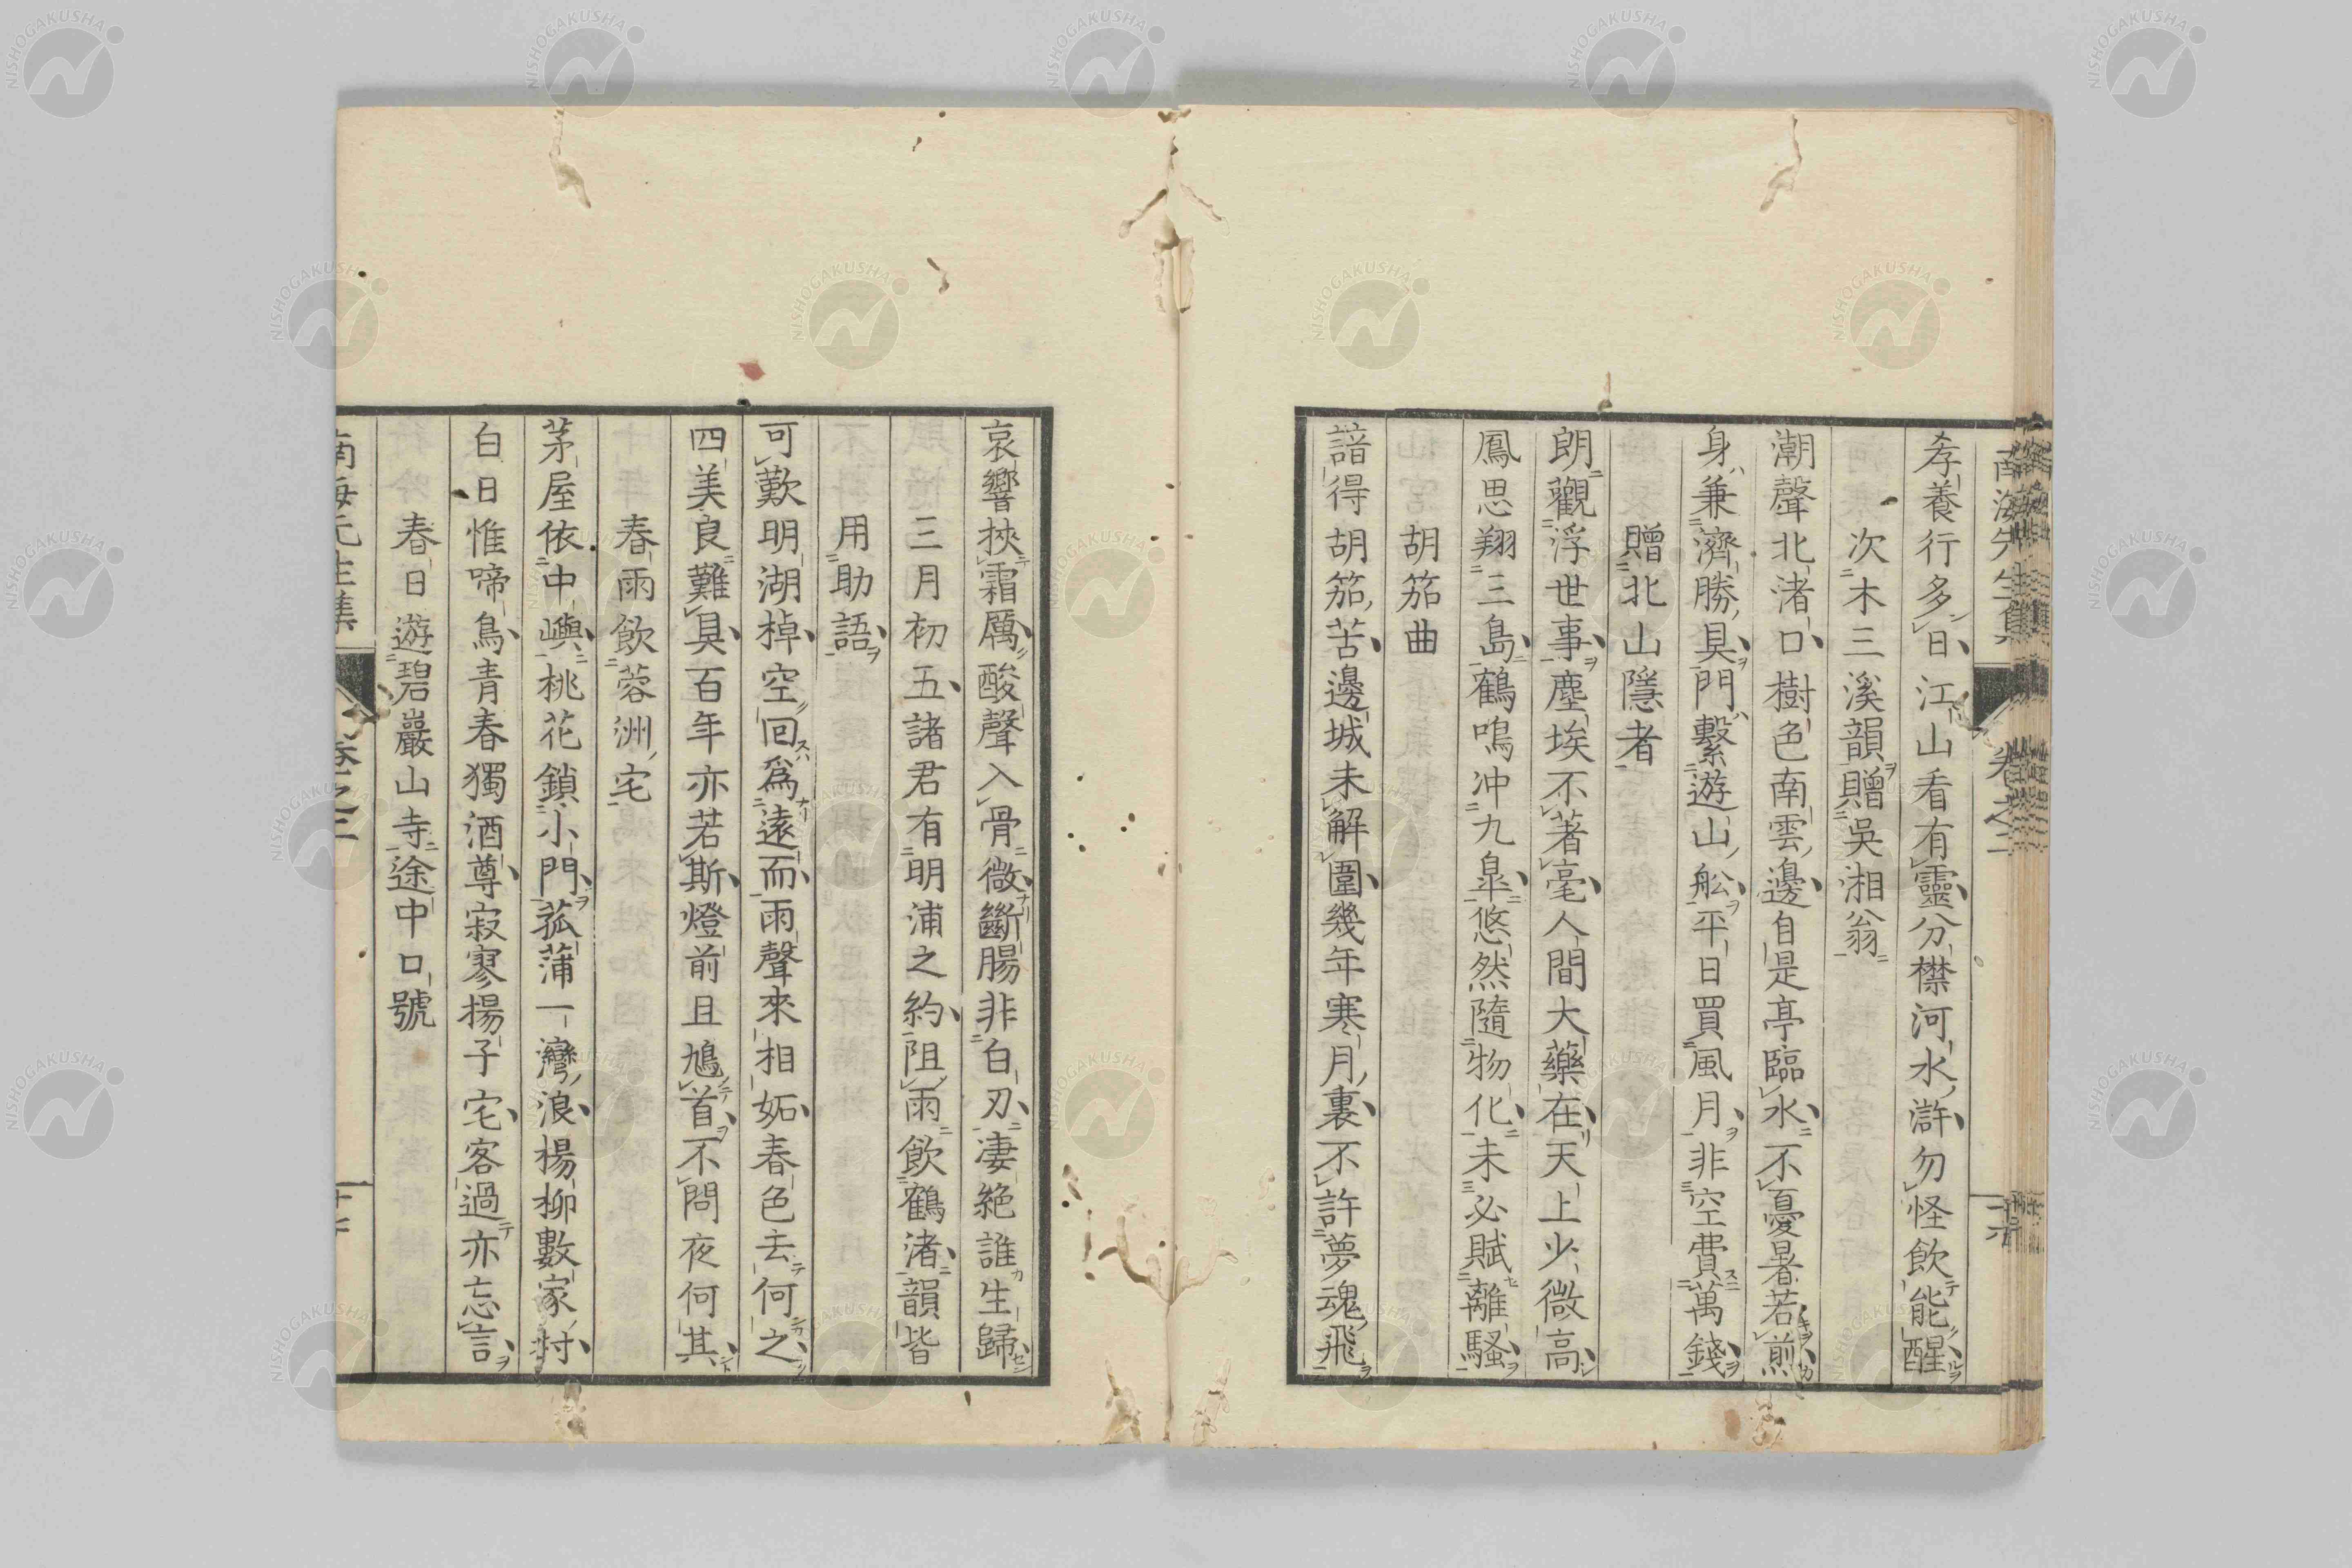 孝養行多日江山看有靈分襟河水滸勿怪飲能醒
次木三溪韻贈吳湘翁
潮聲北渚口樹色南雲邊自是亭臨水不憂暑若煎
身兼濟勝具門繫遊山舩平日買風月非空費萬錢
贈北山隱者
朗觀浮世事塵埃不著毫人間大藥在天上少微高
鳳思翔三島鶴鳴冲九皐悠然隨物化未必賦離騷
胡笳曲
諳得胡笳苦邊城未解圍幾年寒月裏不許夢魂飛
哀響挾霜厲酸聲入骨微斷腸非白刃凄絕誰生歸
三月初五諸君有明浦之約阻雨飲鶴渚韻皆
用助語
可歎明湖棹空回爲遠而雨聲來相妬春色去何之
四美良難具百年亦若斯燈前且鳩首不問夜何其
春雨飲蓉洲宅
茅屋依中嶼桃花鎖小門菰蒲一灣浪楊柳數家村
白日惟啼鳥青春獨酒尊寂寥揚子宅客過亦忘言
春日遊碧巖山寺途中口號
南海先生集 卷之三